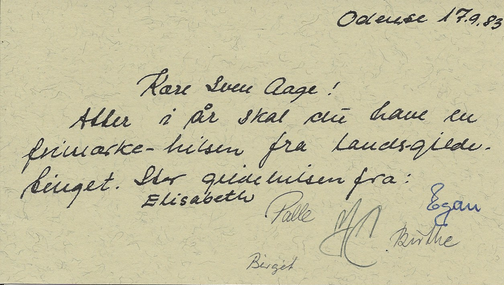 Odense 17.9.83
Kære Sven Aage!
Atter i år skal du have en
frimærke-hilsen fra landsgilde-
tinget. Stor gildehilsen fra:
Elisabeth
Palle
Egan
Birthe
Birgit